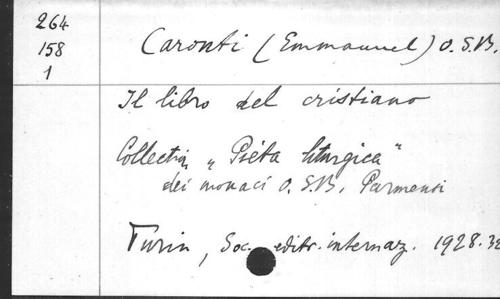 264
158
1
Caronti (Emmanuel) O.S.B.
Il libro del cristiano
Collectin „Piéta liturgica"
dei monaci O.S.B. Parmensi
Turin, Soc. editr. internaz. 1928. 32